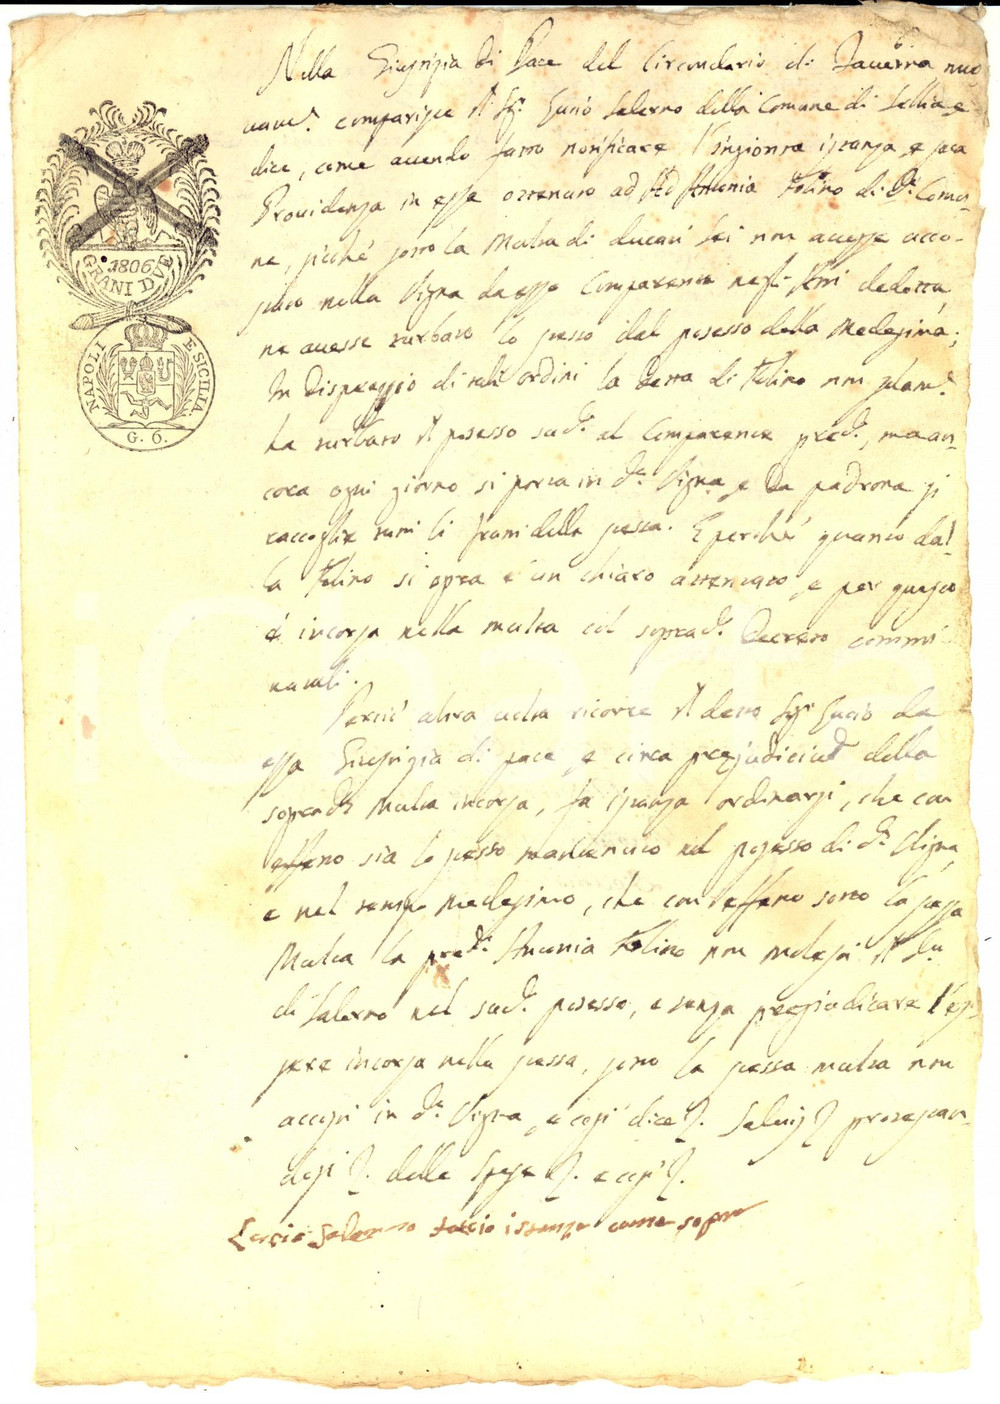 Nella Giustizia di Pace del Circondario di Taverna, nuo
vam.e comparisce il Sig.r Lucio Salerno della Comune di Sellia e
dice, come avendo fatto notificare l'ingionta istanza, e sua
Providenza in essa ottenuta ad Antonia Folino di d.a Comu-
ne, perché sotto la Multa di ducati sei non avesse acco-
stato nella Vigna da esso Comparente negl'Atti dedotta,
ne avesse turbato lo stesso dal possesso della medesima;
In dispreggio di tali ordini la detta di Folino non solam.e
ha turbato il possesso sud.o al Comparente pred.o, ma an-
cora ogni giorno si porta in d.a Vigna, e da padrona si
raccoglie tutti li frutti della stessa. E perché quanto dal-
la Folino si opra è un chiaro attentato, e per questo
è incorsa nella multa col soprad.o Decreto commi-
natali.
Perciò altra volta ricorre il detto Sig.r Lucio da
essa Giustizia di pace, e citra prejudicium della
soprad.a Multa incorsa, fa istanza ordinarsi, che con
effetto sia lo stesso mantenuto nel possesso di d.a Vigna,
e nel tempo medesimo, che con effetto sotto la stessa
Multa la pred.a Antonia Folino non molesti il
di Salerno nel sud.o possesso, e senza pregiudicare l'es-
sere incorsa nella stessa, sotto la stessa multa non
accosti in d.a Vigna, e così dice. Salvis prosequan-
dosi. delle Spese. e così.
Lucio Salerno faccio istanza come sopra
1806
GRANI DVE
NAPOLI E SICILIA.
G. 6.